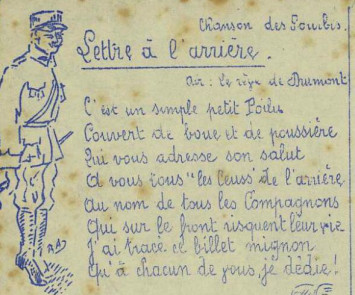 Chanson des Gourbis.
Lettre à l'arrière.
Air : le rêve de Dumont
C'est un simple petit Poilu
Couvert de boue et de poussière
Qui vous adresse son salut
A vous tous "les ceuss" de l'arrière
Au nom de tous les Compagnons
Qui sur le front risquent leur vie
J'ai tracé ce billet mignon
Qu'à chacun de vous je dédie !